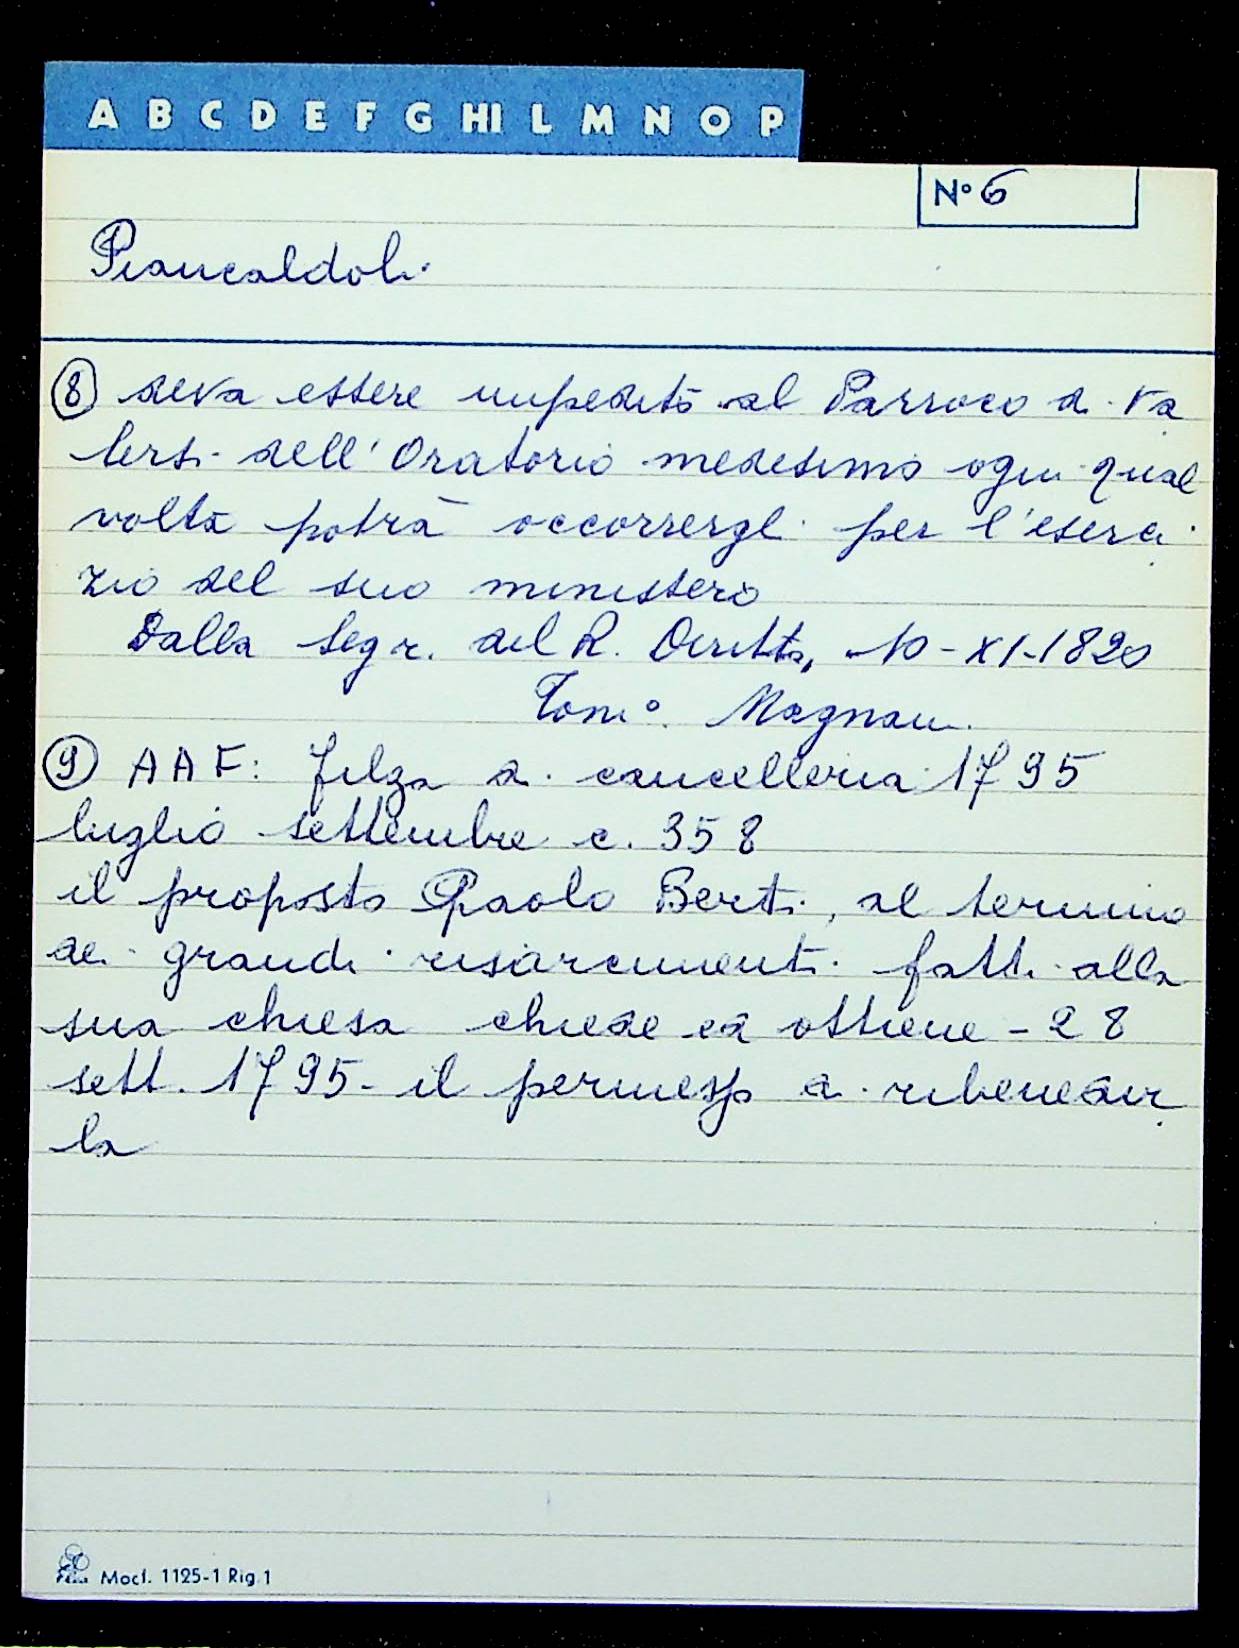 A B C D E F G HI L M N O P
N° 6
Piancaldoli
8 deva essere impedito al Parroco di va
lersi dell'Oratorio medesimo ogni qual
volta potrà occorrergli per l'eserci
zio del suo ministero
Dalla Segr. del R. Diritto, 10-XI-1820
Magnani
9 AAF: filza di cancelleria 1795
luglio settembre c. 358
il proposto Paolo Berti, al termine
dei grandi risarcimenti fatti alla
sua chiesa chiede ed ottiene - 28
sett. 1795 - il permesso di ribenedir
la
Mod. 1125-1 Rig. 1